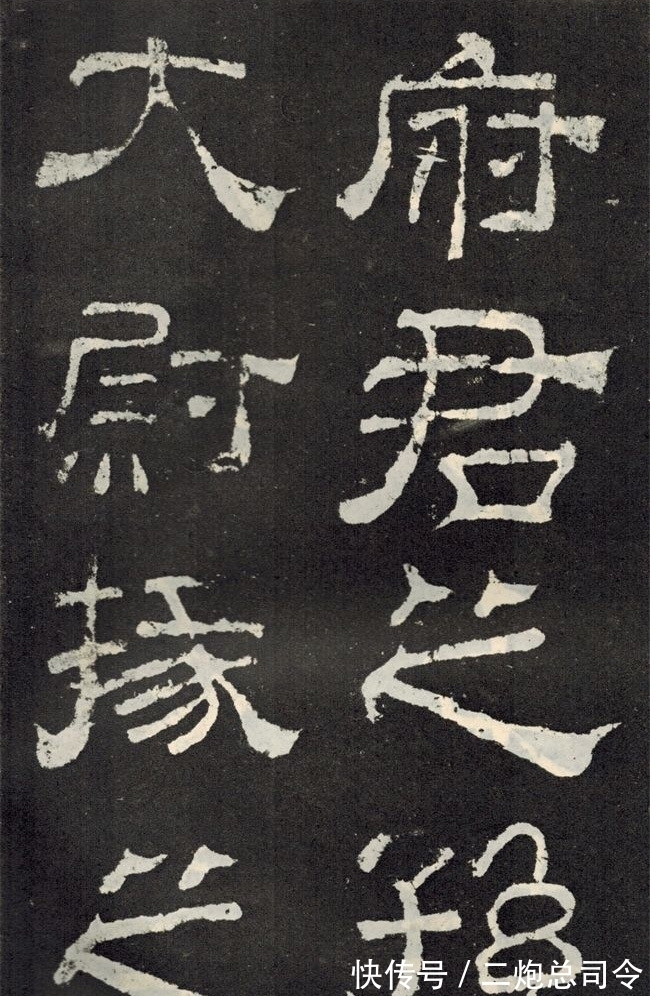 府君之孫
大尉掾之
快传号 / 二炮总司令